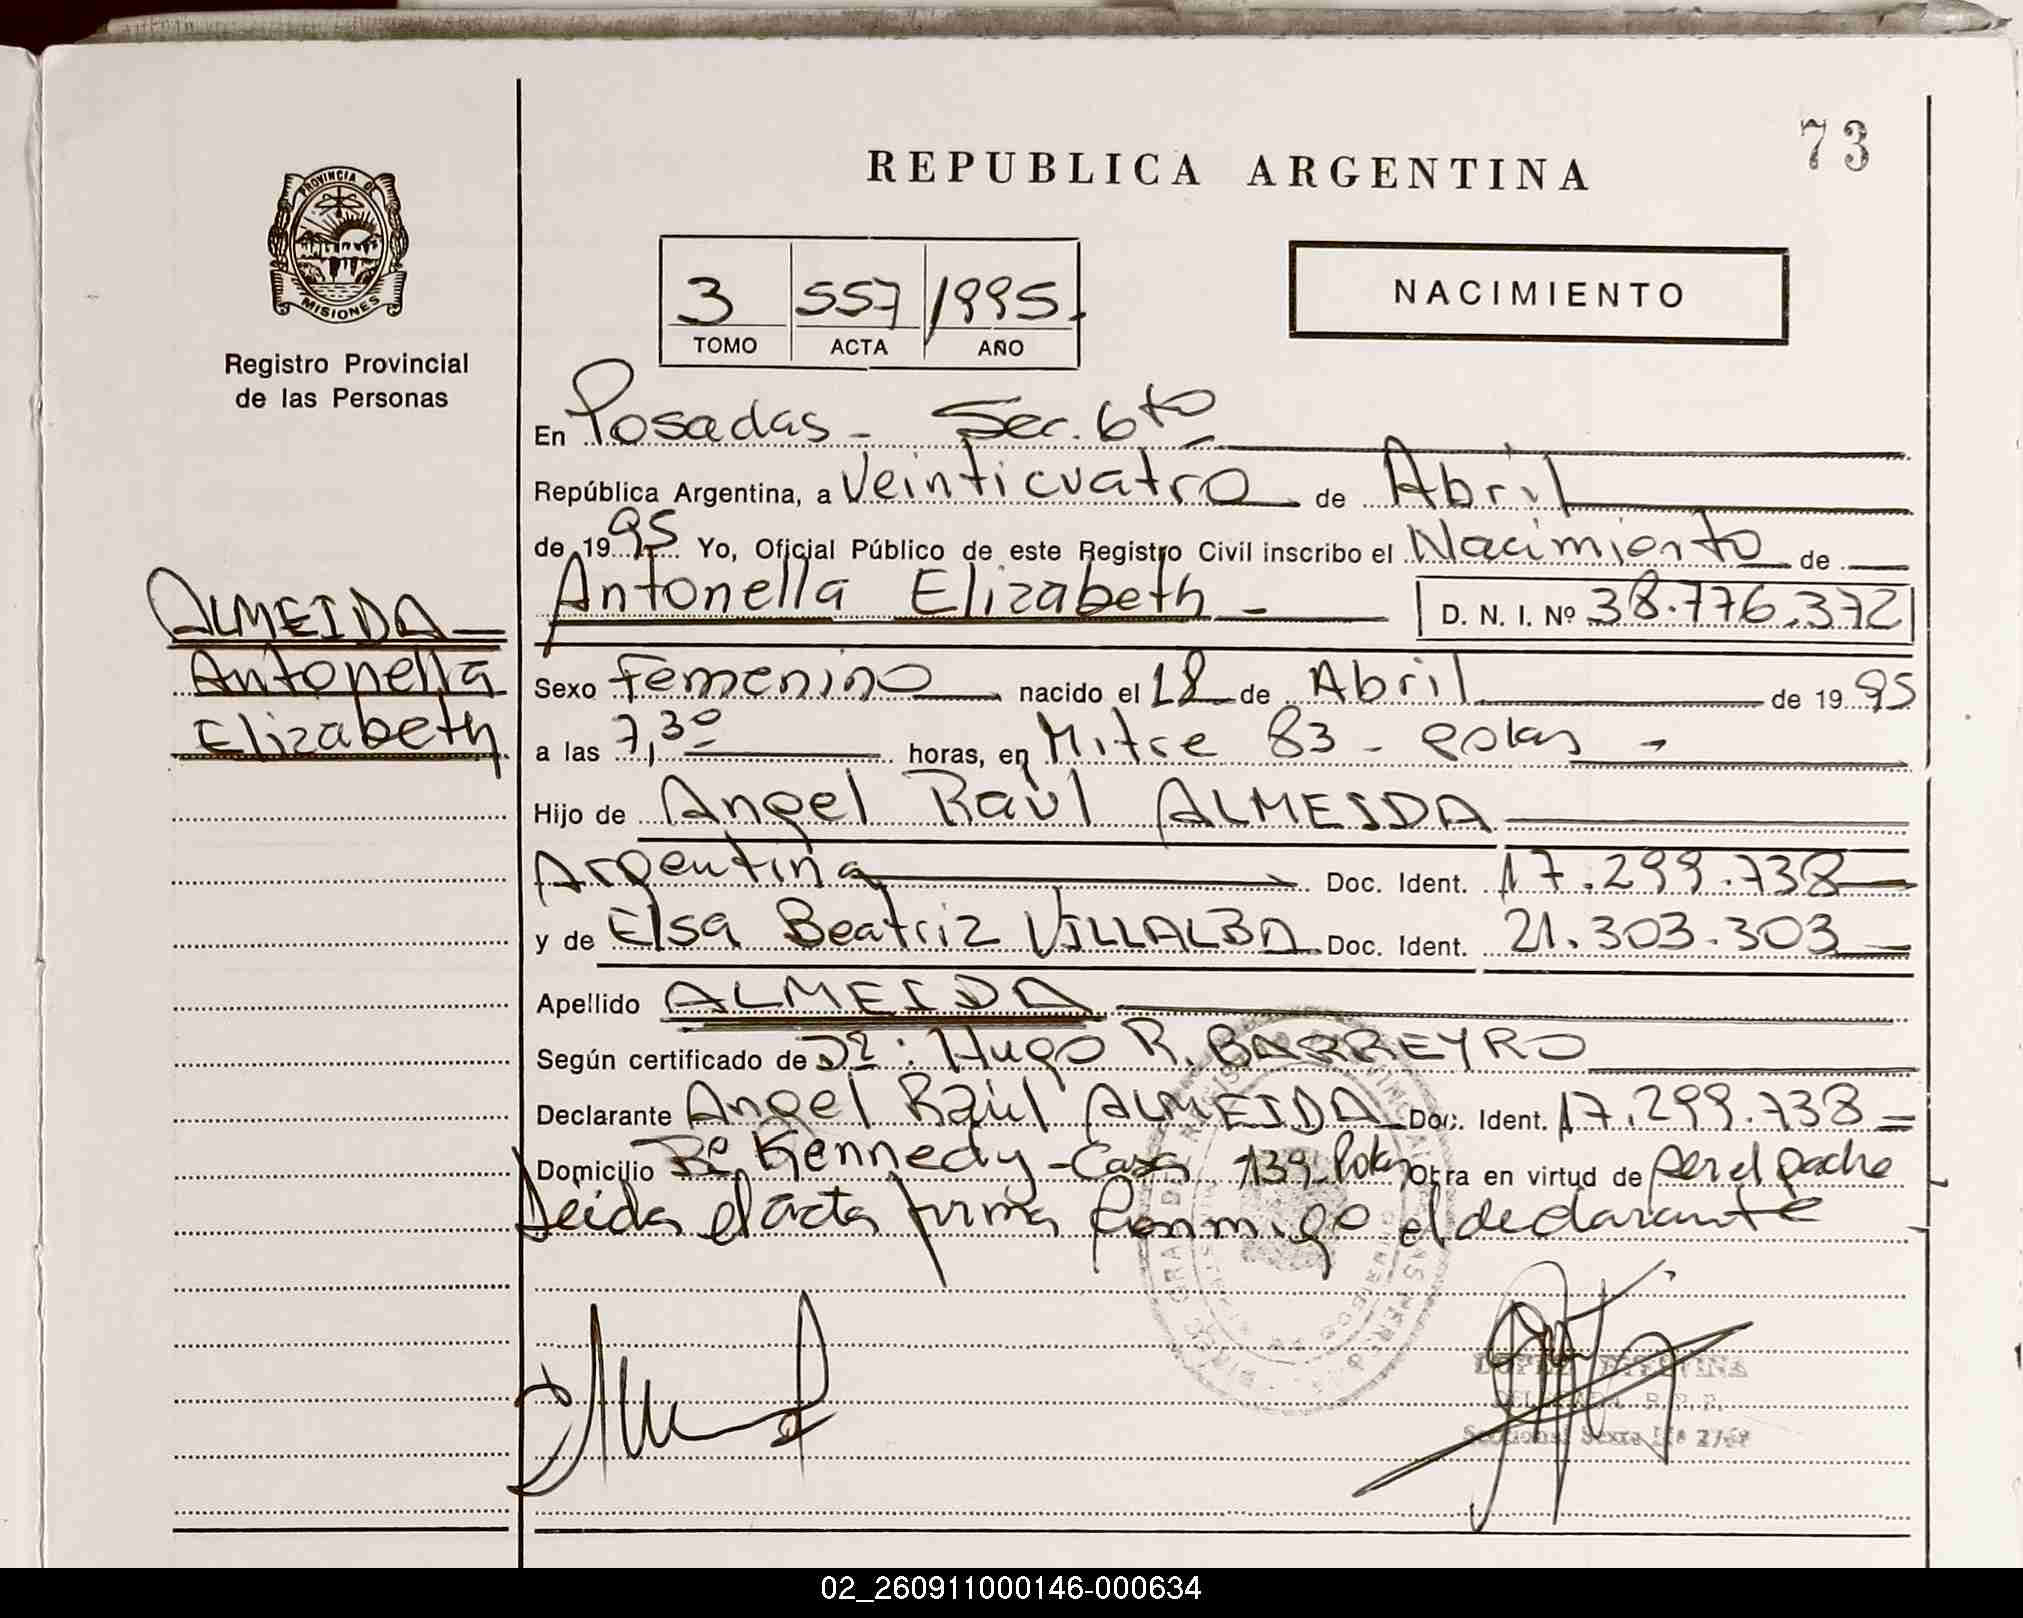 73
REPUBLICA ARGENTINA
PROVINCIA DE
MISIONES
Registro Provincial
de las Personas
3 557 1995.
TOMO ACTA AÑO
NACIMIENTO
En Posadas - Sec. 6to
República Argentina, a Veinticuatro de Abril
de 1995 Yo, Oficial Público de este Registro Civil inscribo el Nacimiento de
Antonella Elizabeth - D. N. I. Nº 38.776.372
ALMEIDA
Antonella
Elizabeth
Sexo Femenino nacido el 18 de Abril de 1995
a las 7,30 horas, en Mitre 83 - Pdas -
Hijo de Angel Raúl ALMEIDA
Argentina Doc. Ident. 17.299.738
y de Elsa Beatriz VILLALBA Doc. Ident. 21.303.303
Apellido ALMEIDA
Según certificado de Dr: Hugo R. BARREYRO
Declarante Angel Raúl ALMEIDA Doc. Ident. 17.299.738
Domicilio Bº Kennedy - Casa 139 Pdas Obra en virtud de ser el padre
Leida el acta firma conmigo el declarante
02_260911000146-000634